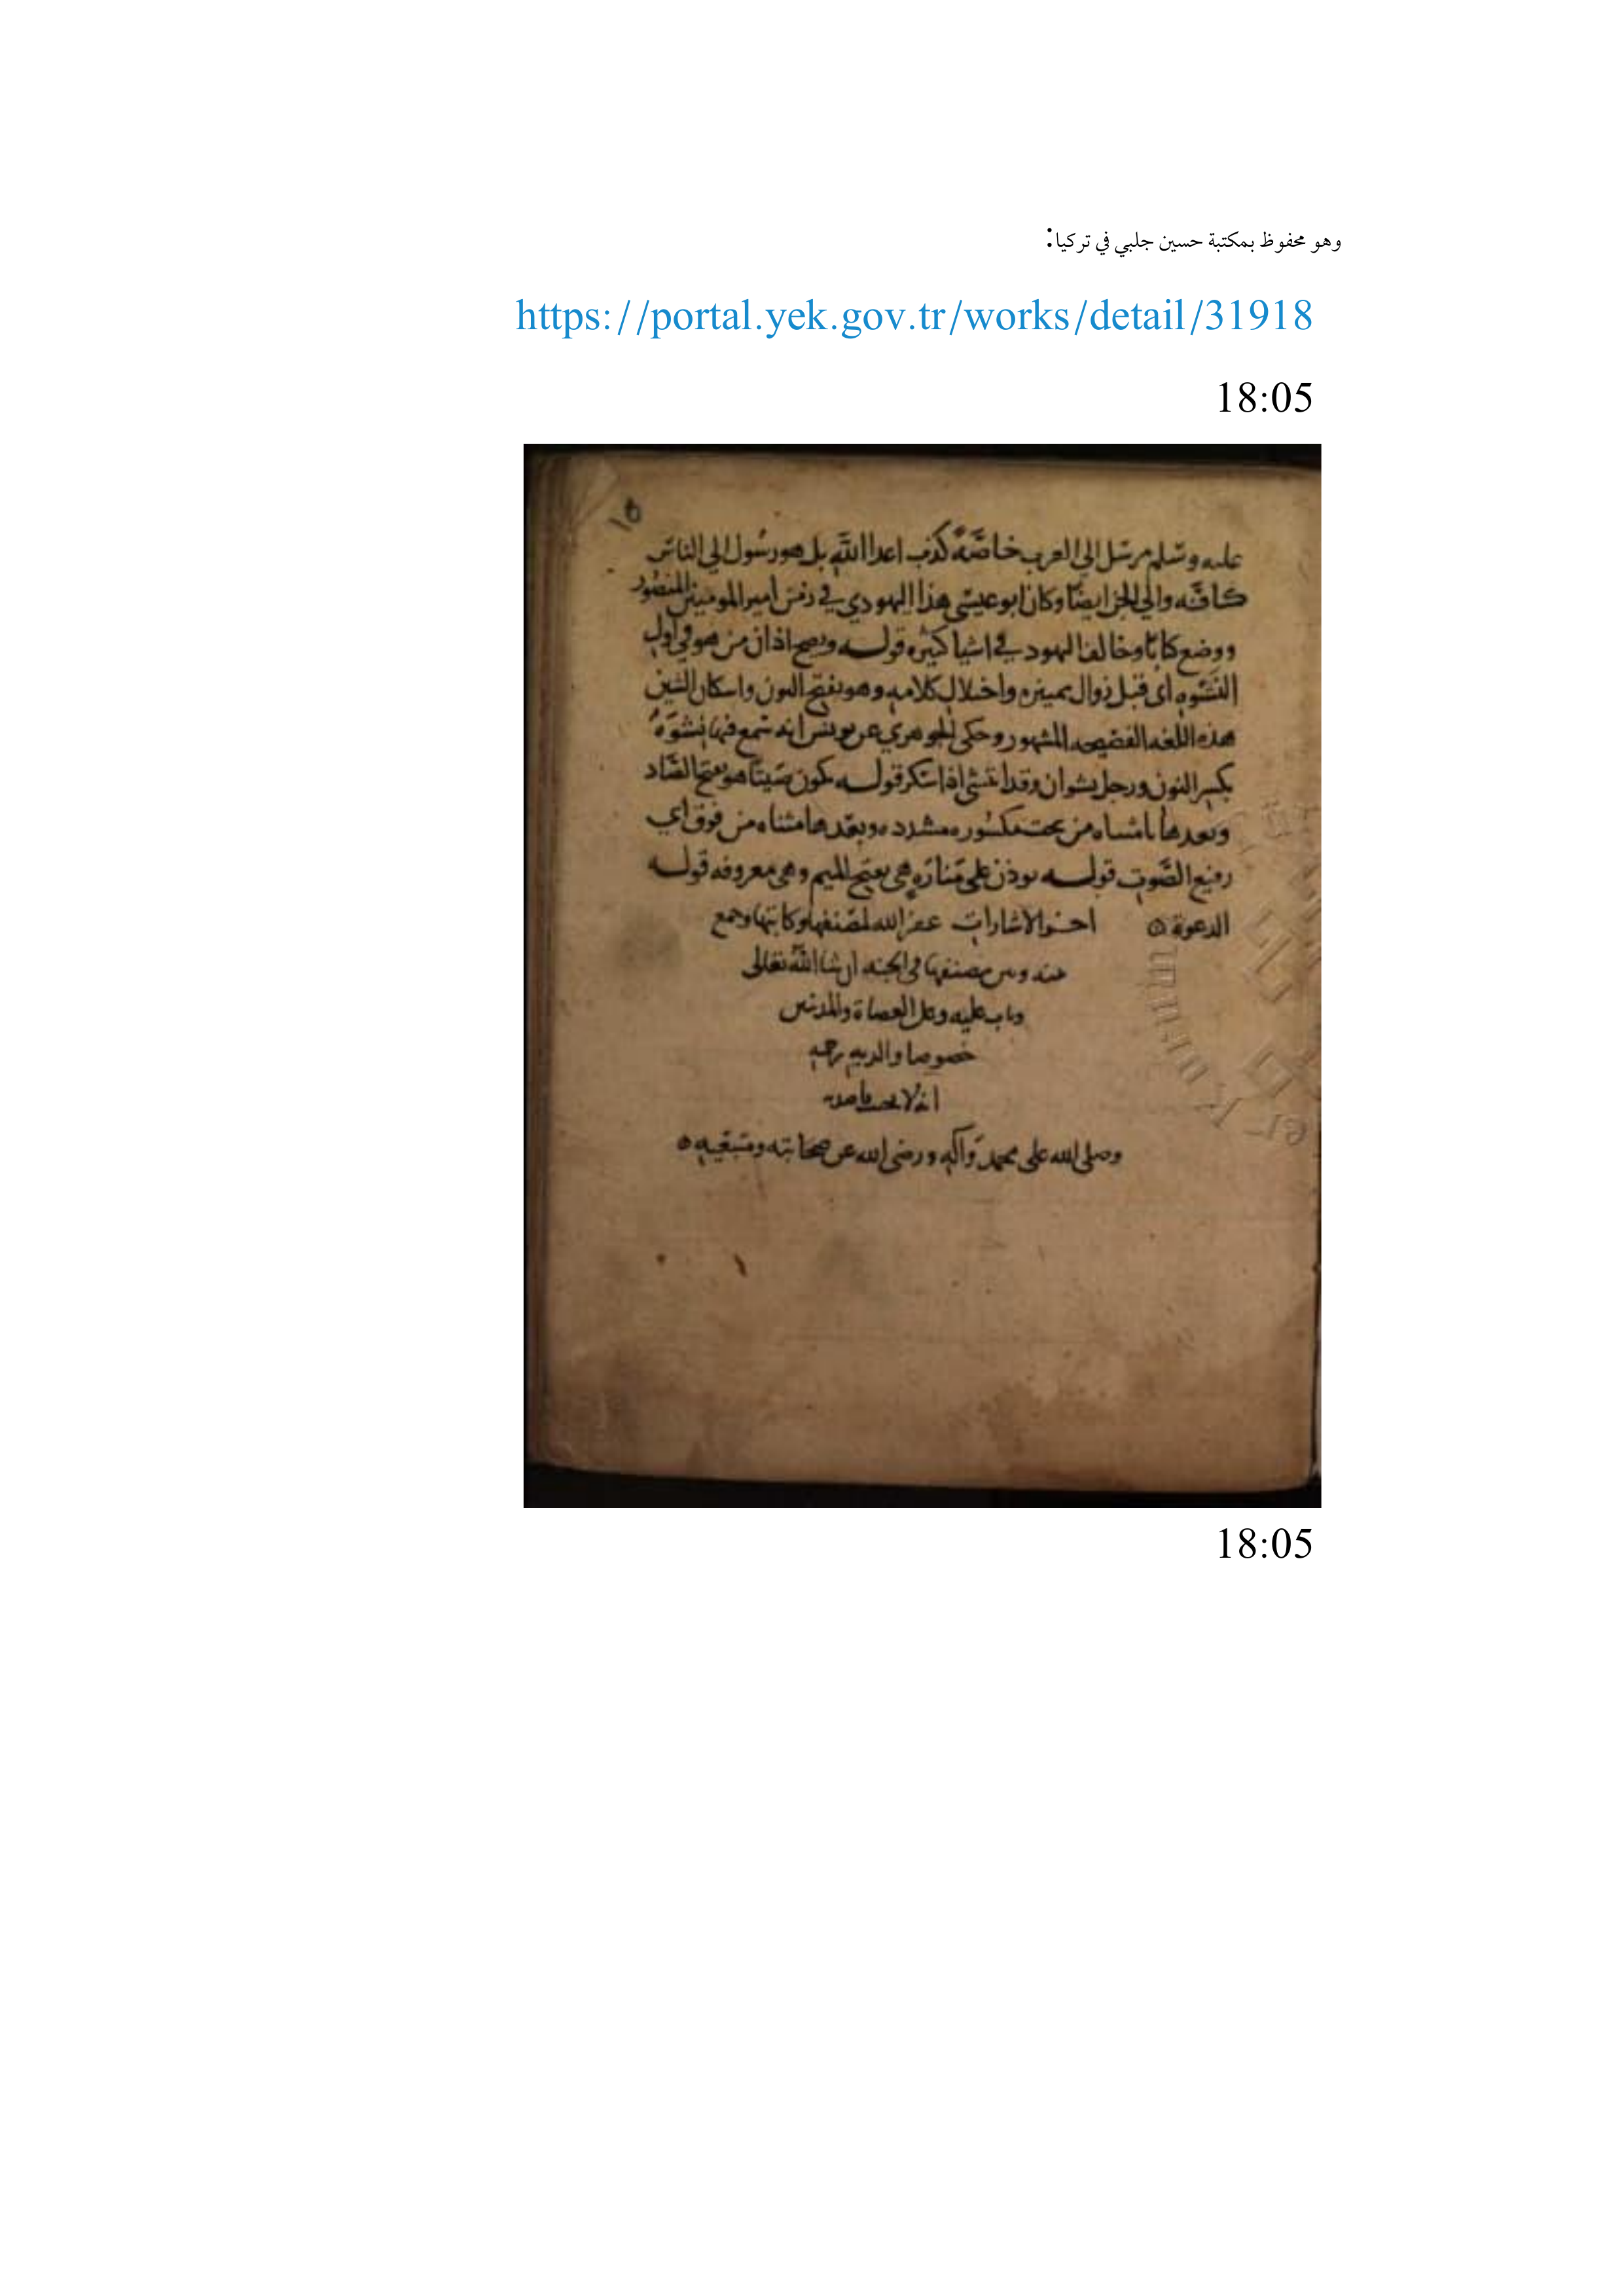 وهو محفوظ بمكتبة حسين جلبي في تركيا:
https://portal.yek.gov.tr/works/detail/31918
18:05
١٥
عليه وسلم مرسل الي العرب خاصَّةً كذب اعدا الله بل هو رسُول الي الناس
كافَّه والي الجن ايضًا وكان ابو عيسى هذا اليهودي في زمن امير المومنين المنصُور
ووضع كتابًا وخالف اليهود في اشيا كثيره قوله ويصح اذان من هو في اول
النَّشْوه اى قبل زوال تمييزه واختلال كلامه وهو بفتح النون واسكان الشين
هذه اللغه الفصيحه المشهور وحكى الجوهري عن يونس انه سمع فيها نِشْوَةً
بكسر النون ورجل نشوان وقد انتشى اذا سكر قوله يكون صيّتًا هو بفتح الصَّاد
وبعدها يا مثناه من تحت مكسُوره مشدده وبعدها مثناه من فوق اي
رفيع الصَّوت قوله يوذن على مَنارَه هى بفتح الميم وهي معروفه قوله
الدعوة ه اخر الاشارات غفر الله لمصنفها وكاتبها وجمع
بينه وبين مصنفها في الجنه ان شا الله تعالى
وتاب عليه وعلى العصاة والمذنبين
خصوصا والديه
وصلى الله على محمد وآله ورضي الله عن صحابته ومتبعيه ه
18:05